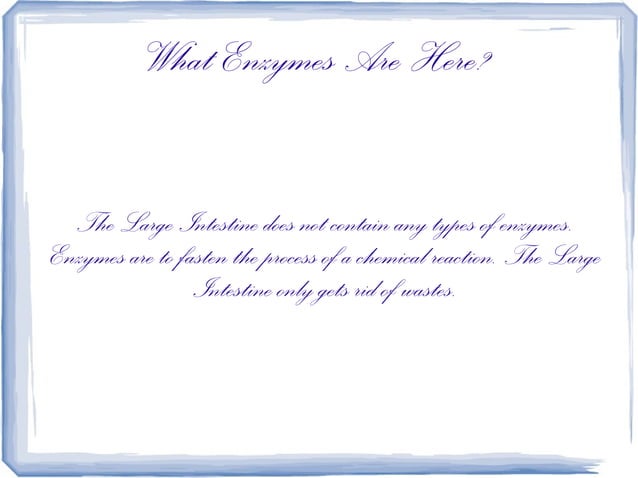 What Enzymes Are Here?
The Large Intestine does not contain any types of enzymes.
Enzymes are to fasten the process of a chemical reaction. The Large
Intestine only gets rid of wastes.